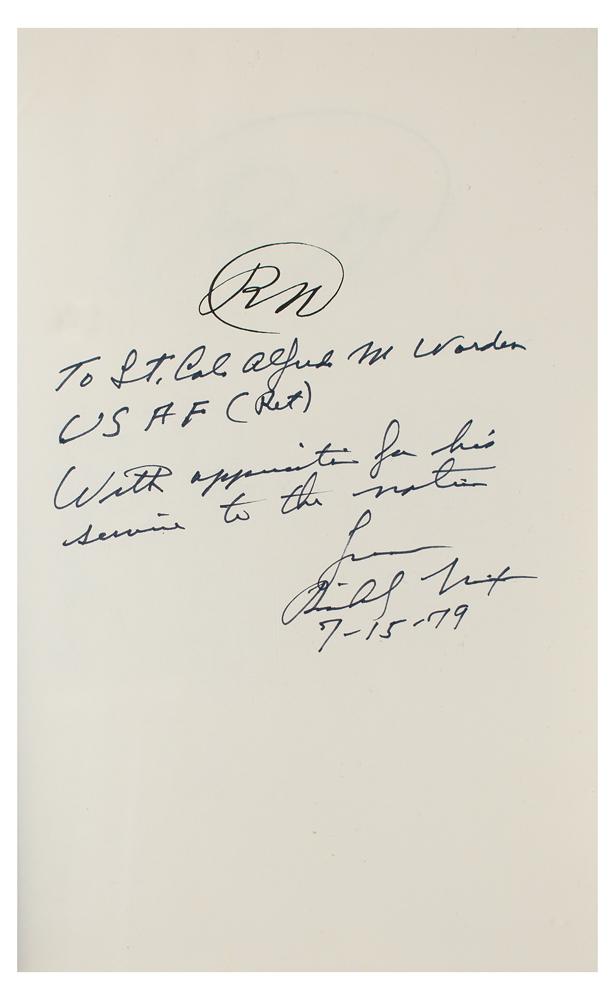 RN
To Lt. Col Alfred M Worden
USAF (Ret)
With appreciation for his
service to the nation
from
Richard Nixon
7-15-79